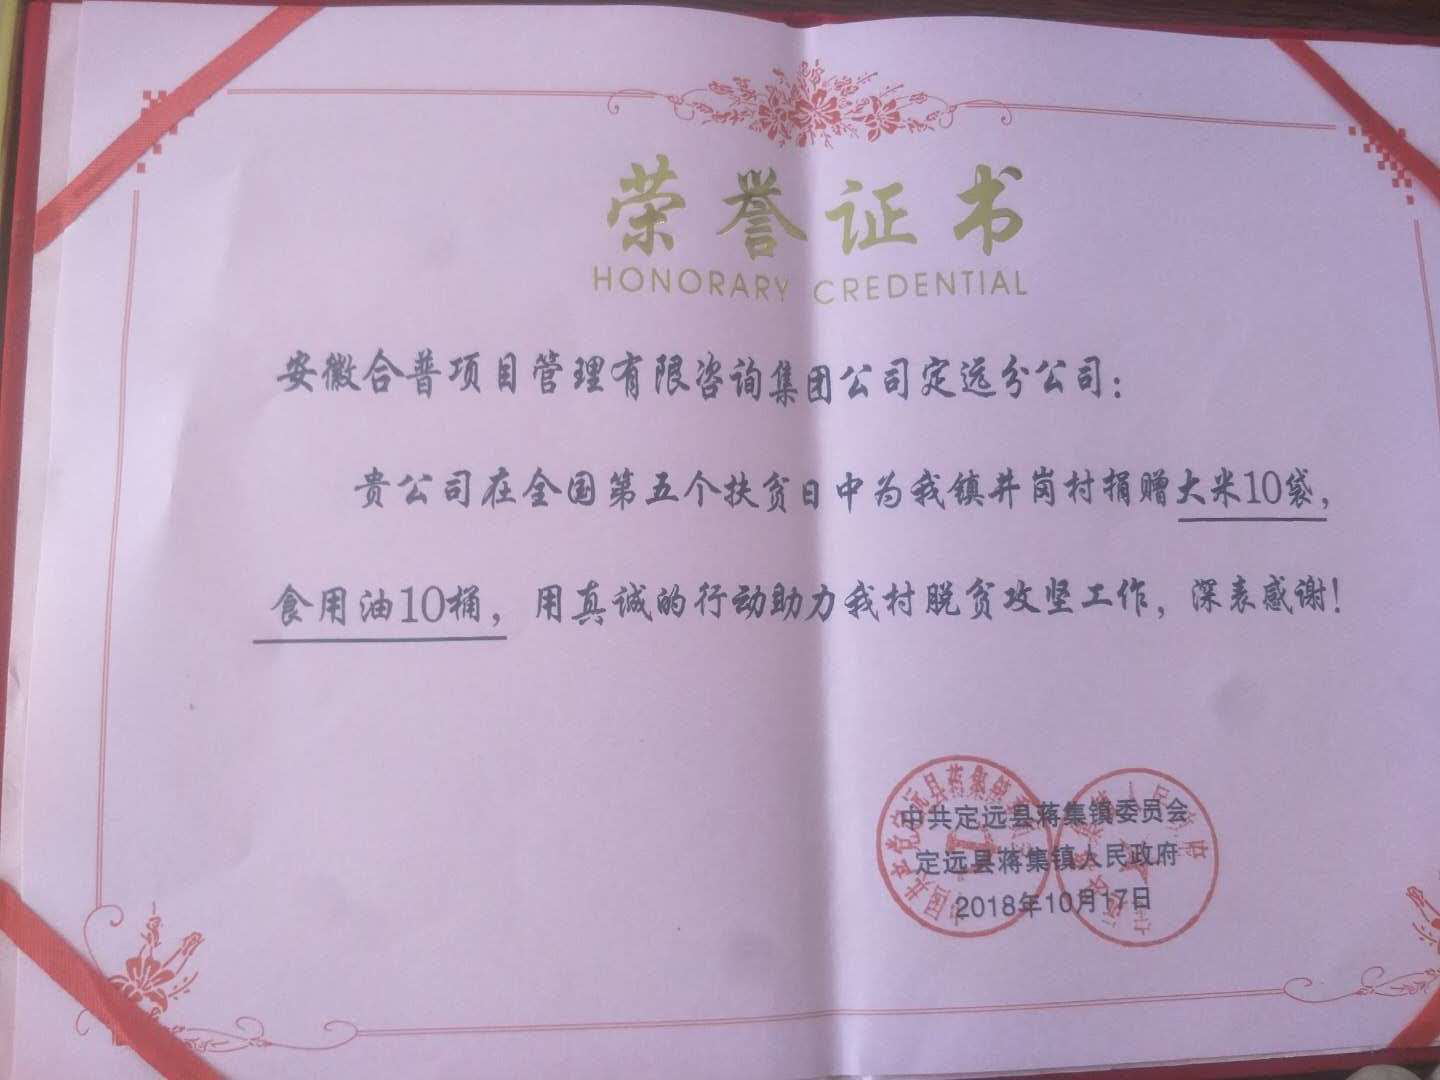 荣誉证书
HONORARY CREDENTIAL
安徽合普项目管理有限咨询集团公司定远分公司：
贵公司在全国第五个扶贫日中为我镇井岗村捐赠大米10袋，
食用油10桶，用真诚的行动助力我村脱贫攻坚工作，深表感谢！
中共定远县蒋集镇委员会
定远县蒋集镇人民政府
2018年10月17日